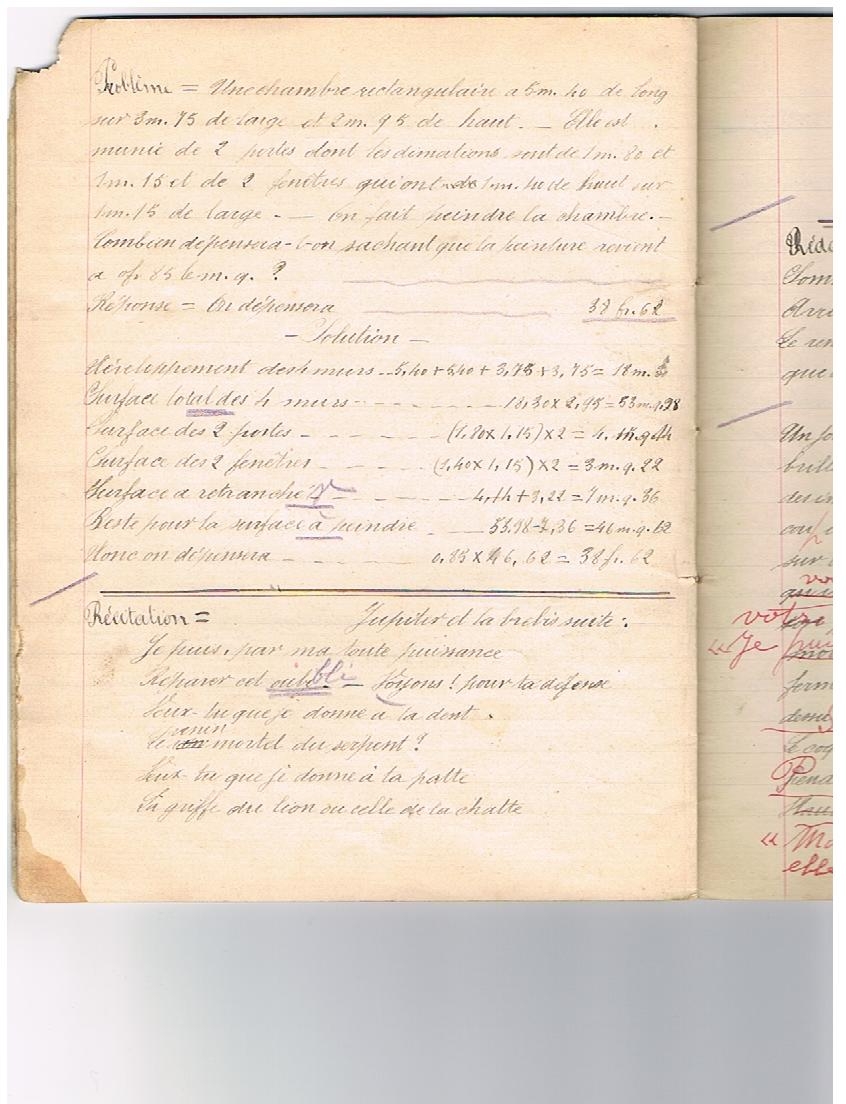 Problème = Une chambre rectangulaire a 5m. 40 de long
sur 3m. 75 de large et 2m. 95 de haut. — Elle est
munie de 2 portes dont les dimations sont de 1m. 80 et
1m. 15 et de 2 fenêtres qui ont de 1m. 40 de haut sur
1m. 15 de large. — On fait peindre la chambre. —
Combien dépensera-t-on sachant que la peinture revient
a 0f. 85 le m. q. ?
Réponse = On dépensera 38 fr. 62
— Solution —
Développement des 4 murs - 5,40 + 5,40 + 3,75 + 3,75 = 18 m.
Surface total des 4 murs - - - - - 18,30 x 2,95 = 53 m.q. 98
Surface des 2 portes - - - - (1,80 x 1,15) x 2 = 4, m.q. 14
Surface des 2 fenêtres - - - (1,40 x 1,15) x 2 = 3 m. q. 22
Surface a retranché r - - - - 4,14 + 3,22 = 7 m. q. 36
Reste pour la surface à peindre - - 53,98 - 7,36 = 46 m. q. 62
Donc on dépensera - - - - 0,85 x 46,62 = 38 f. 62
Récitation = Jupiter et la brebis suite :
Je puis, par ma toute puissance
Réparer cet oubli blé — Voyons ! pour ta défense
Veux-tu que je donne a ta dent .
Le venin mortel du serpent ?
Veux-tu que je donne à ta patte
La griffe du lion ou celle de la chatte
Réd
Som
Arri
Le ren
que
Un jo
brill
des
cou
sur
vo
votr
« Je pui
form
dessu
Le coq
Prena
« Mo
elle